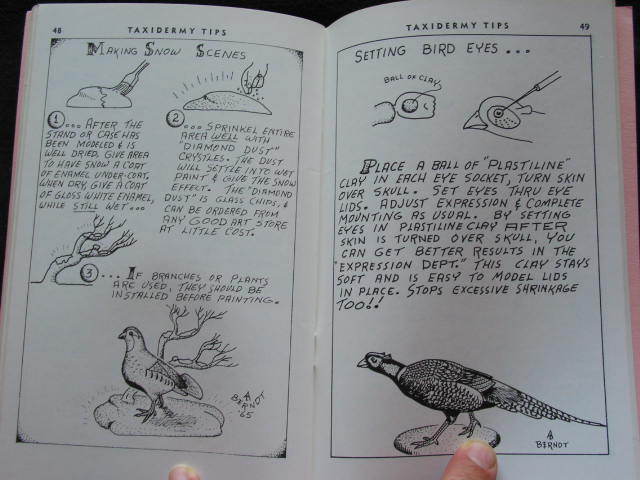 48 TAXIDERMY TIPS
MAKING SNOW SCENES
1... AFTER THE
STAND OR CASE HAS
BEEN MODELED & IS
WELL DRIED, GIVE AREA
TO HAVE SNOW A COAT
OF ENAMEL UNDER-COAT.
WHEN DRY, GIVE A COAT
OF GLOSS WHITE ENAMEL,
WHILE STILL WET...
2... SPRINKEL ENTIRE
AREA WELL WITH
"DIAMOND DUST"
CRYSTLES. THE DUST
WILL SETTLE INTO WET
PAINT & GIVE THE SNOW
EFFECT. THE "DIAMOND
DUST" IS GLASS CHIPS, &
CAN BE ORDERED FROM
ANY GOOD ART STORE
AT LITTLE COST.
3... IF BRANCHES OR PLANTS
ARE USED, THEY SHOULD BE
INSTALLED BEFORE PAINTING.
AB
BERNDT
'65
TAXIDERMY TIPS 49
SETTING BIRD EYES...
BALL OF CLAY
PLACE A BALL OF "PLASTILINE"
CLAY IN EACH EYE SOCKET, TURN SKIN
OVER SKULL. SET EYES THRU EYE
LIDS. ADJUST EXPRESSION & COMPLETE
MOUNTING AS USUAL. BY SETTING
EYES IN PLASTILINE CLAY AFTER
SKIN IS TURNED OVER SKULL, YOU
CAN GET BETTER RESULTS IN THE
"EXPRESSION DEPT." THIS CLAY STAYS
SOFT AND IS EASY TO MODEL LIDS
IN PLACE. STOPS EXCESSIVE SHRINKAGE
TOO!!
AB
BERNDT